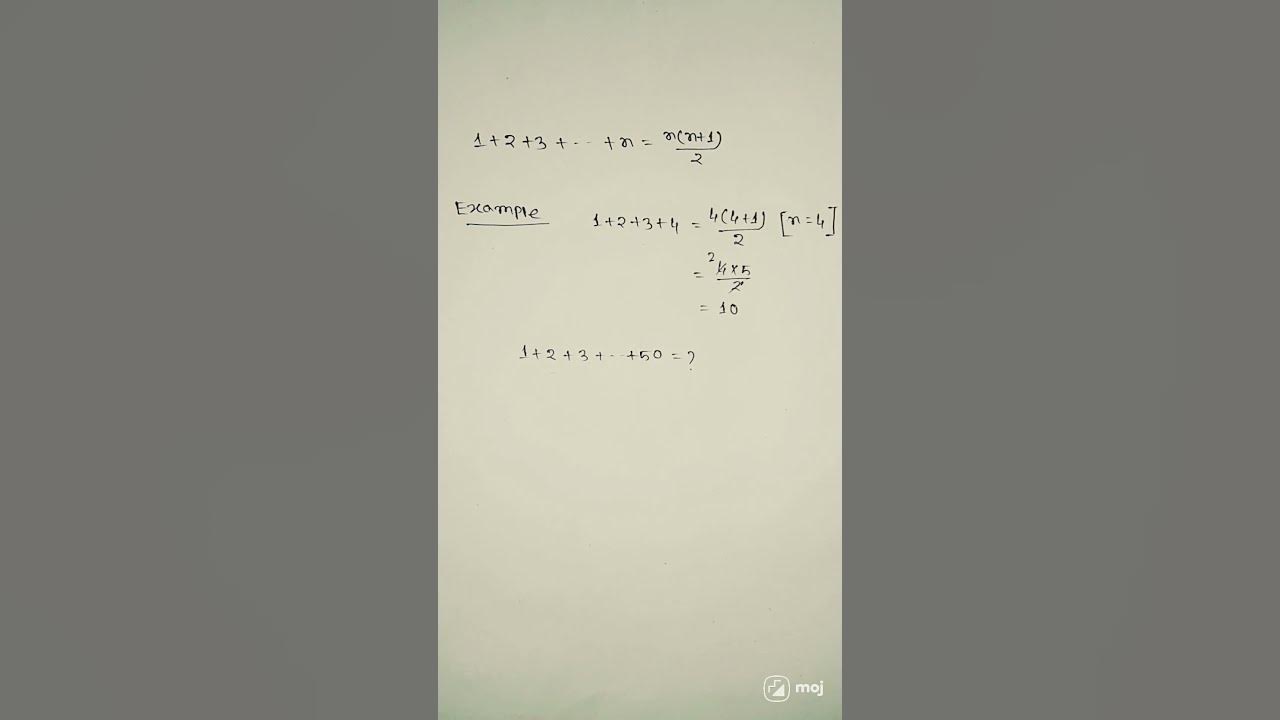 1+2+3+ ··· +n = n(n+1)/2
Example 1+2+3+4 = 4(4+1)/2 [n=4]
= 2 4×5/2
= 10
1+2+3+ ··· +50 = ?
moj